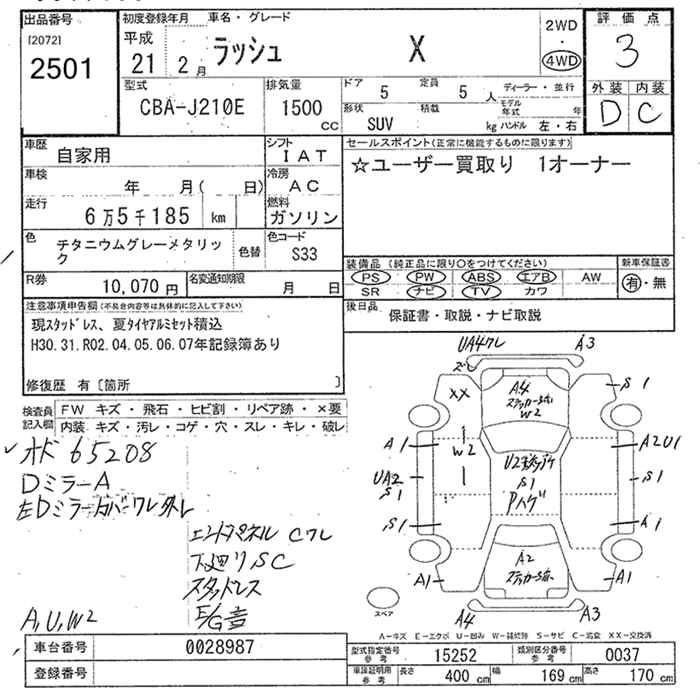 出品番号
[2072]
2501
初度登録年月 車名・グレード
平成 21 2月 ラッシュ X
2WD・4WD
評価点
3
型式
CBA-J210E
排気量
1500 cc
ドア 5 定員 5人
ディーラー・並行
形状 SUV 積載 kg
モデル年式 年
ハンドル 左・右
外装 内装
D C
車歴
自家用
シフト
IAT
車検
年 月( 日)
冷房
AC
走行
6万5千185 km
燃料
ガソリン
色
チタニウムグレーメタリック
色替
色コード
S33
R券
10,070円
名変通知期限
月 日
セールスポイント(正常に機能するものに限ります)
☆ユーザー買取り 1オーナー
装備品(純正品に限り○をつけてください)
PS PW ABS エアB AW
SR ナビ TV カワ
新車保証書
有・無
後日品
保証書・取説・ナビ取説
注意事項申告欄(不具合内容等は具体的に記入して下さい)
現スタッドレス、夏タイヤアルミセット積込
H30.31.R02.04.05.06.07年記録簿あり
修復歴 有[箇所 ]
検査員記入欄
FW キズ・飛石・ヒビ割・リペア跡・×要
内装 キズ・汚レ・コゲ・穴・スレ・キレ・破レ
65208
DミラーA
左Dミラーカバーワレ外レ
エンジンマネル Cワレ
下廻りSC
スタッドレス
E/G音
A,U,W2
UA4ワレ
A3
XX
A4
W2
S1
A1
W2
A2U1
UA2
S1
U2
S1
Pハゲ
S1
S1
A1
A2
A1
A1
スペア
A4
A3
A－キズ E－エクボ U－凹み W－補修跡 S－サビ C－腐食 XX－交換済
車台番号
0028987
登録番号
型式指定番号 参考
15252
類別区分番号 参考
0037
車検証明用 参考
長さ 400cm 幅 169cm 高さ 170cm